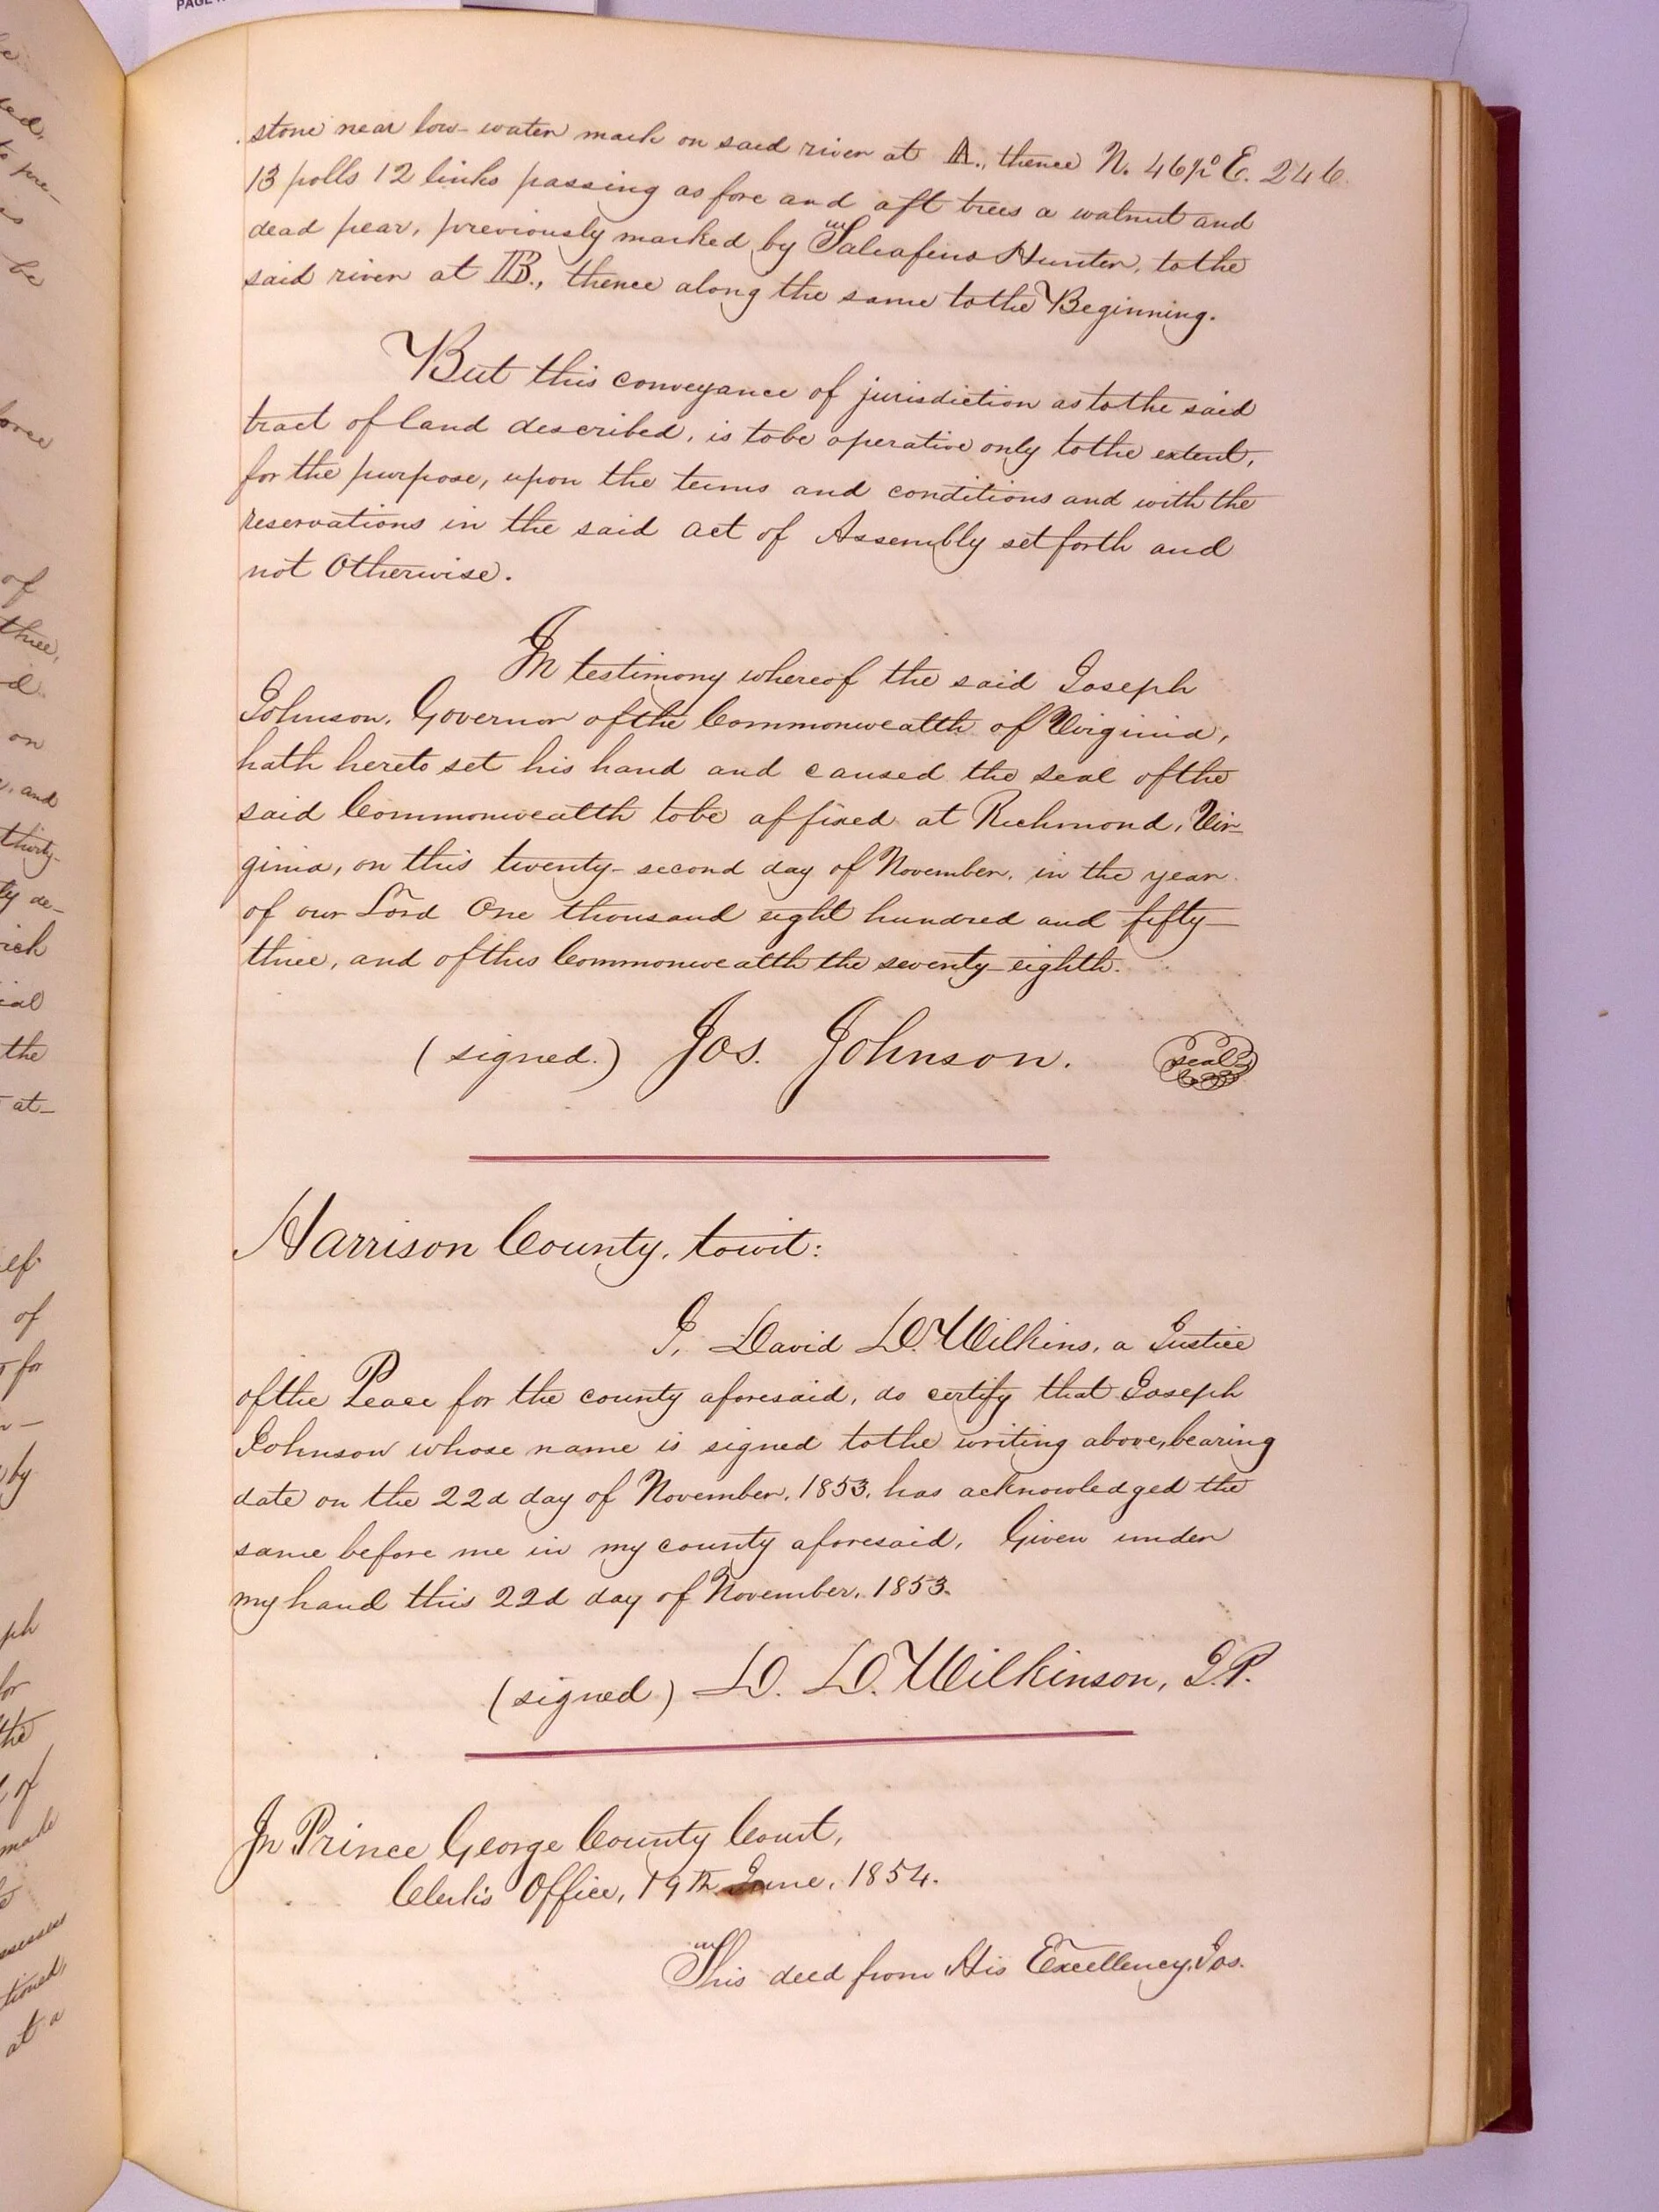 stone near low-water mark on said river at A., thence N. 46½° E. 246
13 polls 12 links passing as fore and aft trees a walnut and
dead pear, previously marked by Taliafeno Hunter, to the
said river at B., thence along the same to the Beginning.
But this conveyance of jurisdiction as to the said
tract of land described, is to be operative only to the extent,
for the purpose, upon the terms and conditions and with the
reservations in the said act of Assembly set forth and
not Otherwise.
In testimony whereof the said Joseph
Johnson, Governor of the Commonwealth of Virginia,
hath hereto set his hand and caused the seal of the
said Commonwealth to be affixed at Richmond, Vir-
ginia, on this twenty-second day of November, in the year
of our Lord One thousand eight hundred and fifty-
three, and of this Commonwealth the seventy-eighth.
(signed.) Jos. Johnson. seal
Harrison County, towit:
I, David D. Wilkins, a Justice
of the Peace for the county aforesaid, do certify that Joseph
Johnson whose name is signed to the writing above, bearing
date on the 22d day of November, 1853, has acknowledged the
same before me in my county aforesaid, Given under
my hand this 22d day of November, 1853.
(signed) D. D. Wilkinson, J.P.
In Prince George County Court,
Clerk's Office, 19th June, 1854.
This deed from His Excellency, Jos.